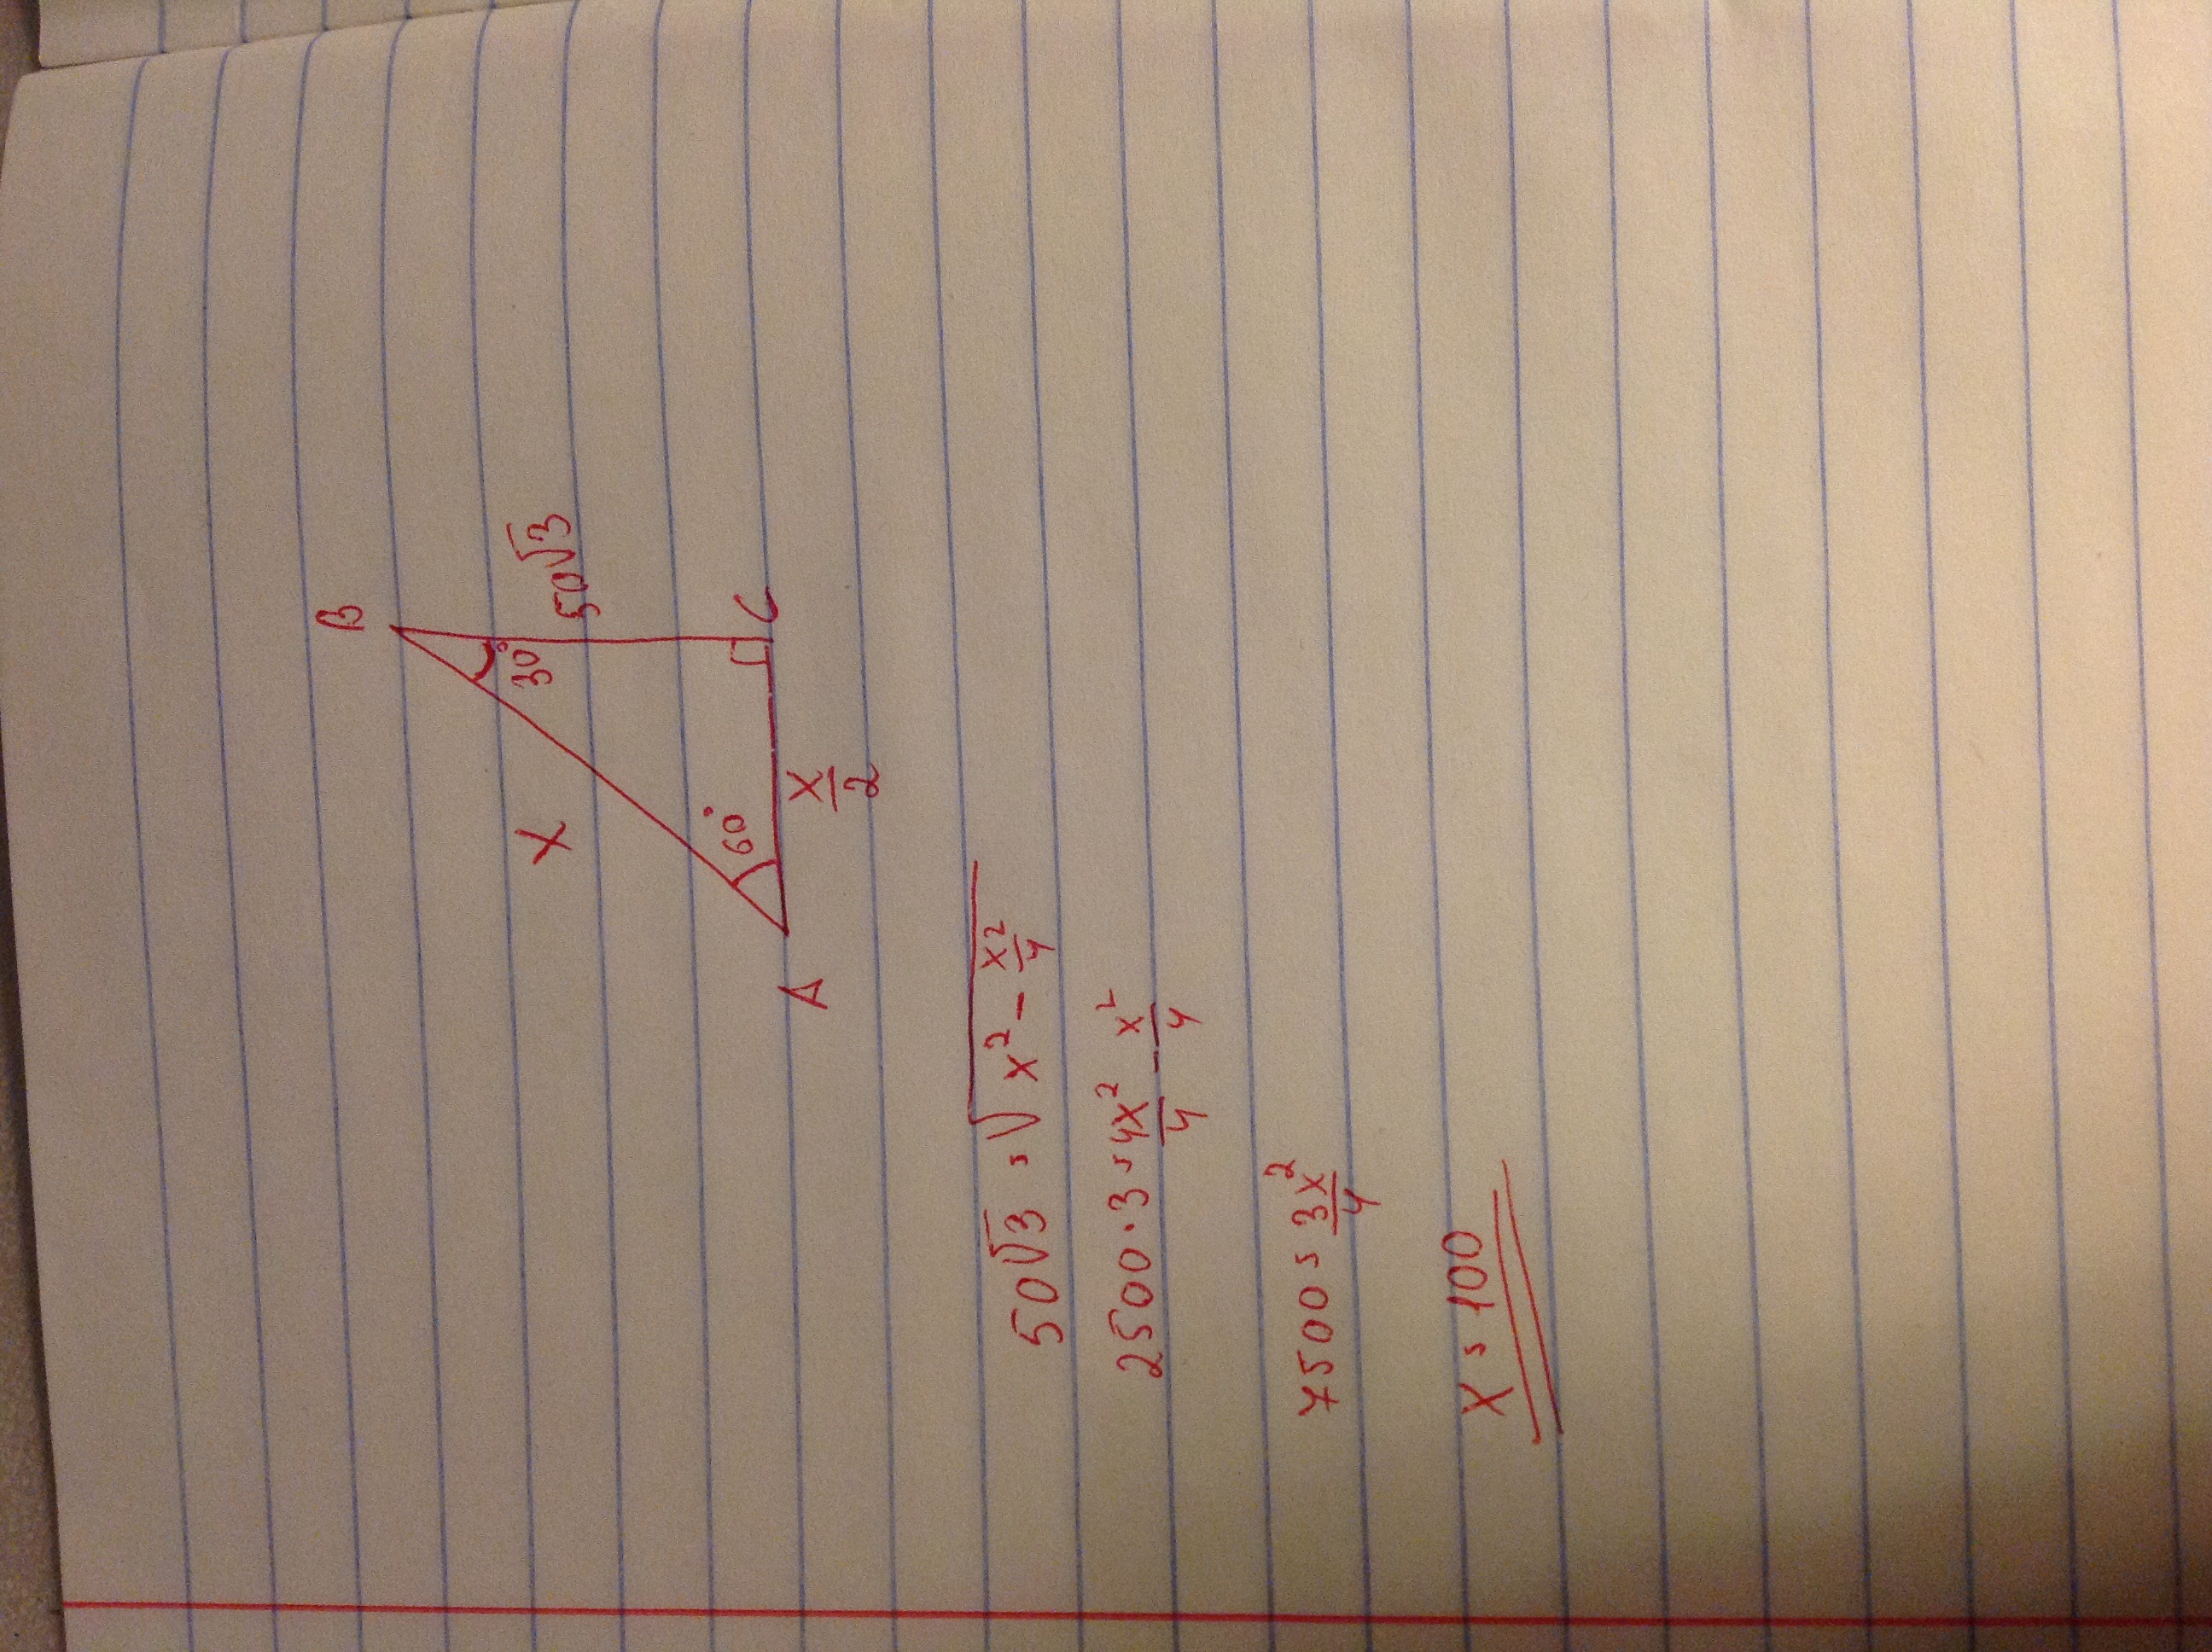 B
30°
50√3
X
60°
A
X/2
C
50√3 = √(x² - x²/4)
2500·3 = 4x²/4 - x²/4
7500 = 3x²/4
X = 100